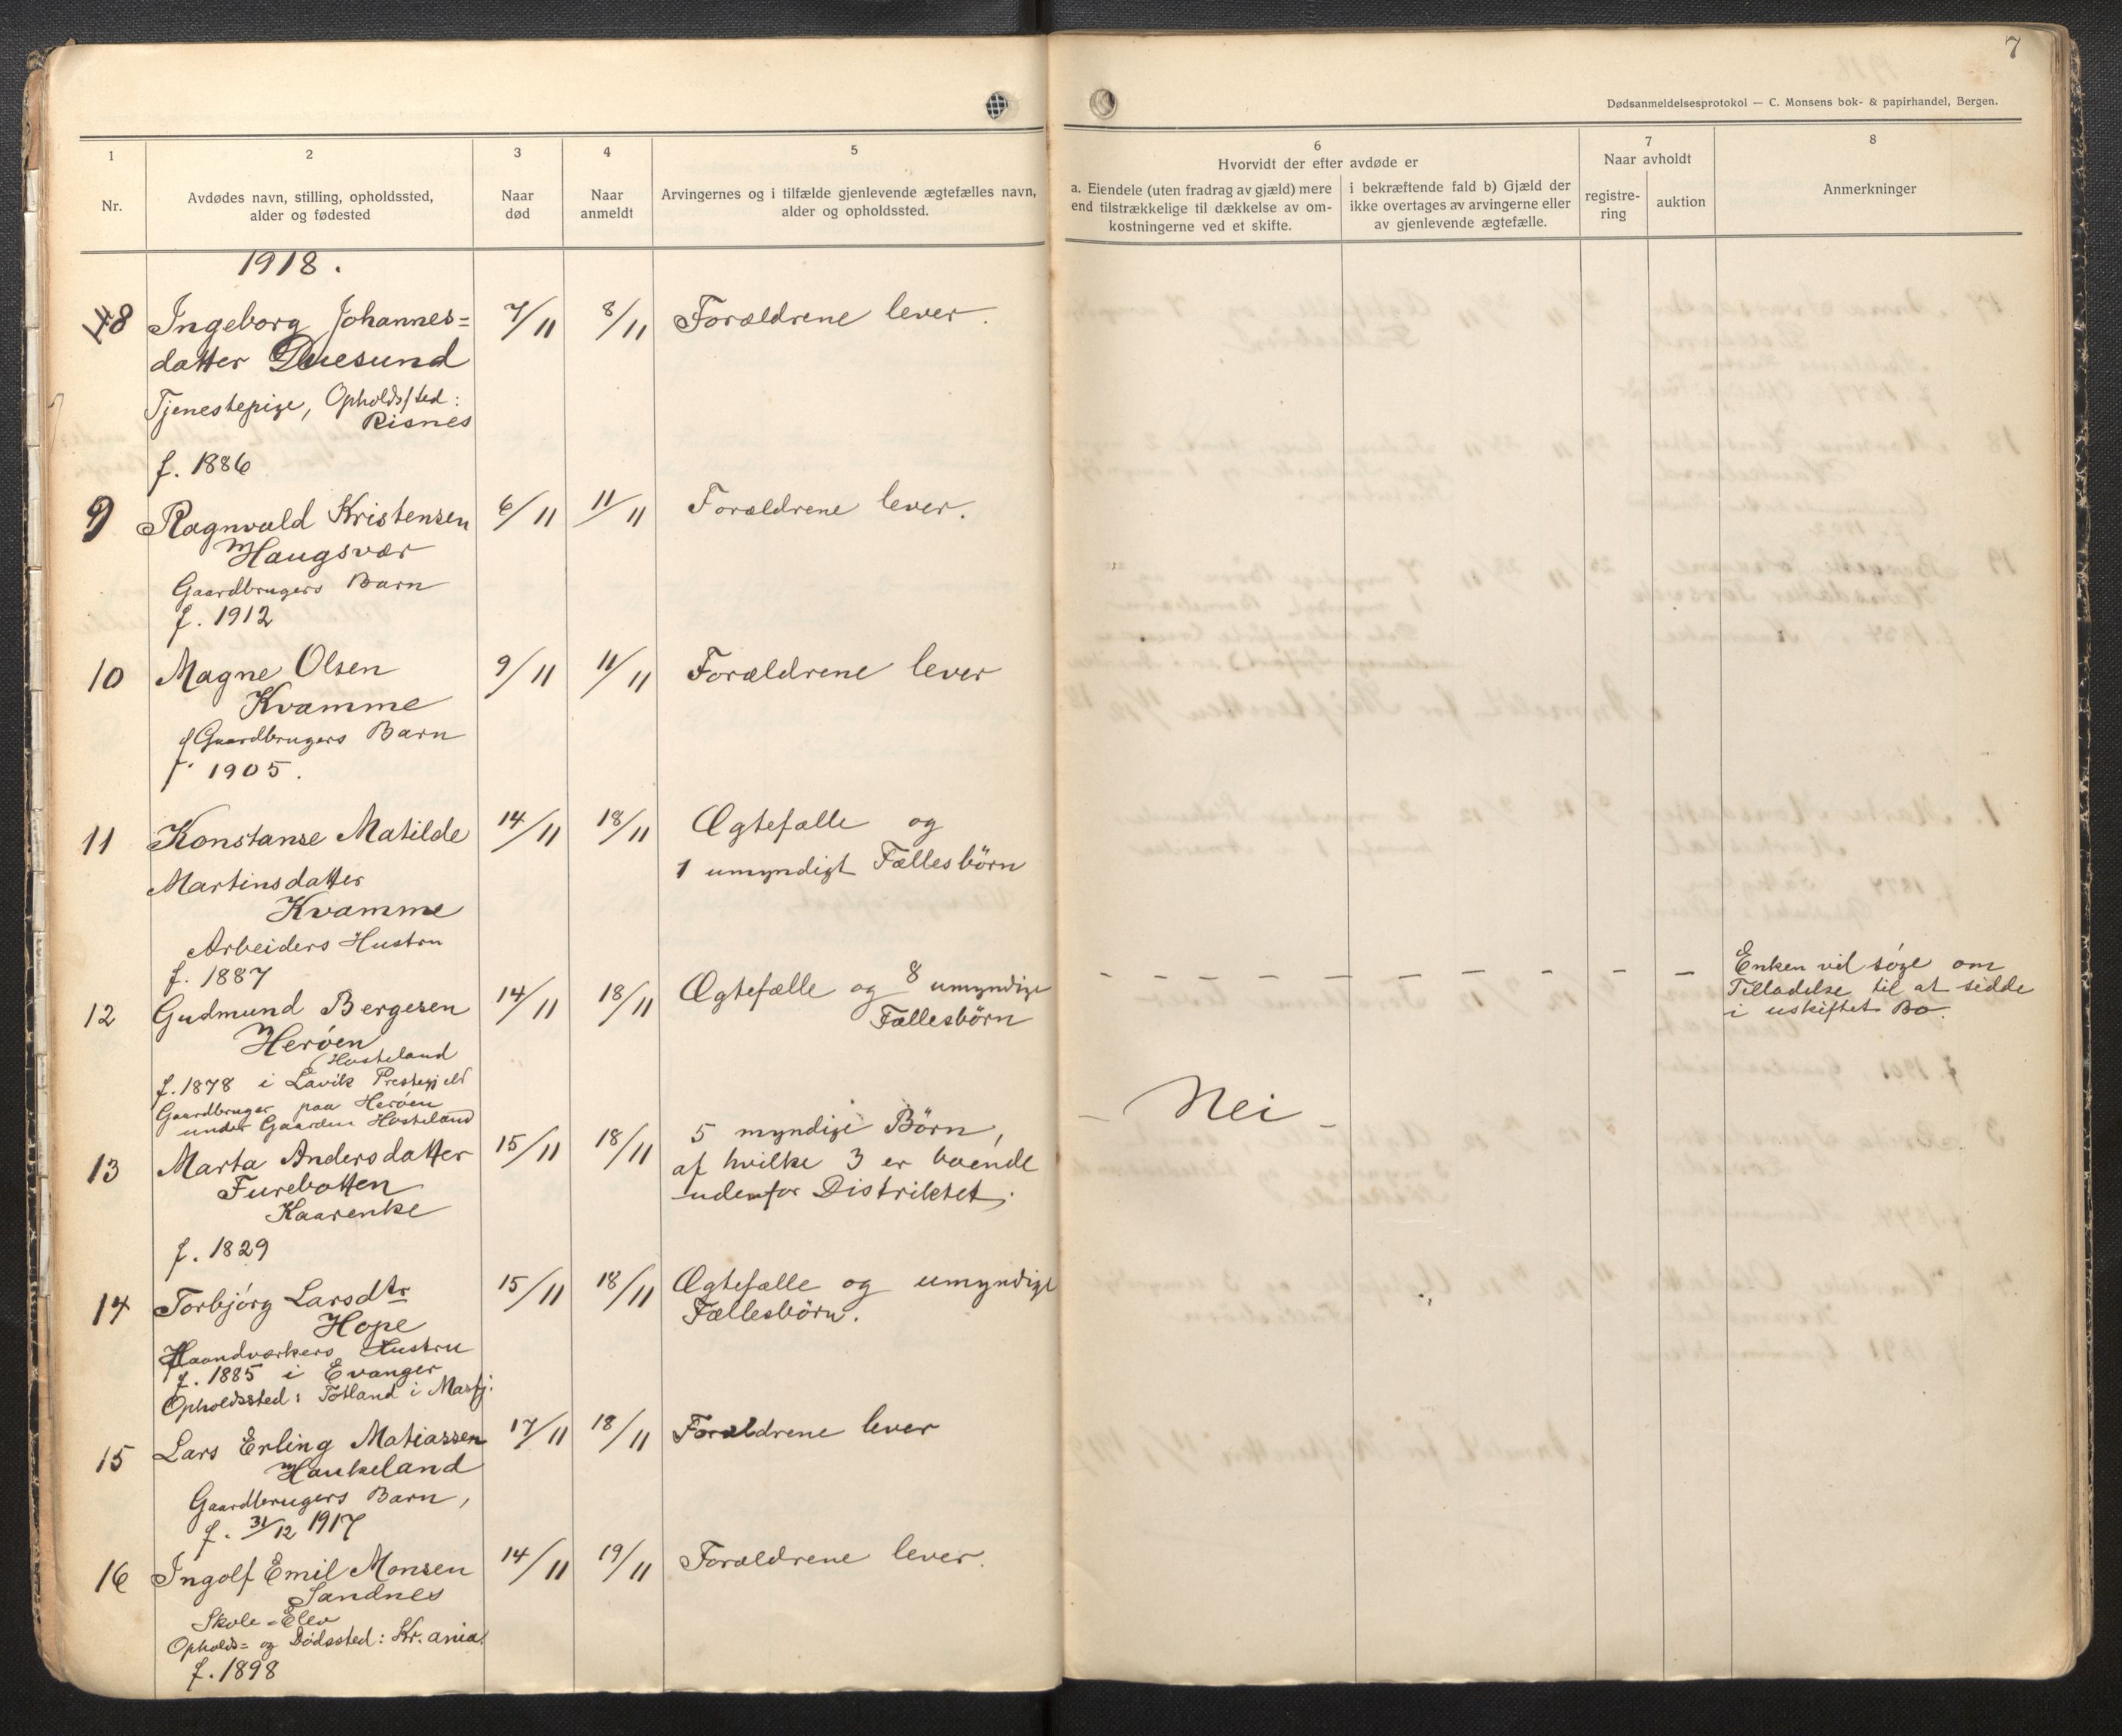 7
Dødsanmeldelsesprotokol — C. Monsens bok- & papirhandel, Bergen.
1
Nr.
2
Avdødes navn, stilling, opholdssted,
alder og fødested
3
Naar
død
4
Naar
anmeldt
5
Arvingernes og i tilfælde gjenlevende ægtefælles navn,
alder og opholdssted.
6
Hvorvidt der efter avdøde er
a. Eiendele (uten fradrag av gjæld) mere
end tilstrækkelige til dækkelse av om-
kostningerne ved et skifte.
i bekræftende fald b) Gjæld der
ikke overtages av arvingerne eller
av gjenlevende ægtefælle.
7
Naar avholdt
registre-
ring
auktion
8
Anmerkninger
1918.
8 Ingeborg Johannes= 7/11 8/11 Forældrene lever.
datter Duesund
Tjenestepige, Opholdssted:
Risnes
f. 1886
9 Ragnvald Kristensen 6/11 11/11 Forældrene lever.
Haugsvær
Gaardbrugers Barn
f. 1912
10 Magne Olsen 9/11 11/11 Forældrene lever
Kvamme
Gaardbrugers Barn
f. 1905.
11 Konstanse Matilde 14/11 18/11 Ægtefælle og
Martinsdatter 1 umyndigt Fællesbörn
Kvamme
Arbeiders Hustru
f. 1887
12 Gudmund Bergesen 14/11 18/11 Ægtefælle og 8 umyndige - - - - - - - - - Enken vil söge om
Herøen Fællesbörn Tilladelse til at sidde
(Hosteland i uskiftet Bo.
f. 1878 i Lavik Prestegjeld
Gaardbruger paa Herøen
under Gaarden Hosteland
13 Marta Andersdatter 15/11 18/11 5 myndige Börn, - Nei -
Furebotten af hvilke 3 er boende
Kaarenke udenfor Distriktet.
f. 1829
14 Torbjörg Larsdtr 15/11 18/11 Ægtefælle og umyndige
Hope Fællesbörn.
Haandværkers Hustru
f. 1885 i Evanger
Opholdssted: Totland i Masfj.
15 Lars Erling Matiassen 17/11 18/11 Forældrene lever
Haukeland
Gaardbrugers Barn,
f. 31/12 1917
16 Ingolf Emil Monsen 14/11 19/11 Forældrene lever.
Sandnes
Skole-Elev
Opholds= og Dødssted: Kr.ania.
f. 1898